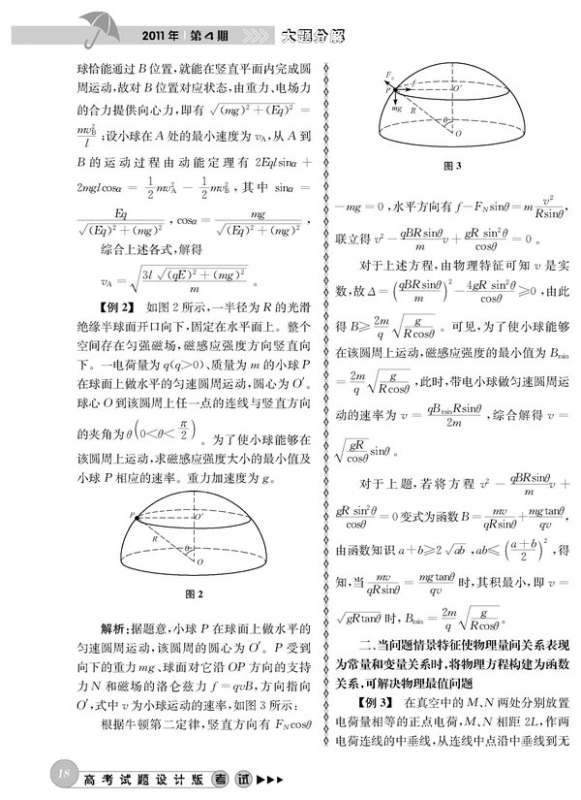 2011年 第4期 大题分解
球恰能通过B位置,就能在竖直平面内完成圆
周运动,故对B位置对应状态,由重力、电场力
的合力提供向心力,即有 √((mg)²+(Eq)²) =
mv_B²/l ;设小球在A处的最小速度为 v_A,从A到
B的运动过程由动能定理有 2Eqlsinα +
2mglcosα = 1/2 mv_A² − 1/2 mv_B² ,其中 sinα =
Eq/√((Eq)²+(mg)²) ,cosα = mg/√((Eq)²+(mg)²) ,
综合上述各式,解得
v_A = √(3l√((qE)²+(mg)²)/m) 。
【例2】 如图2所示,一半径为R的光滑
绝缘半球面开口向下,固定在水平面上。整个
空间存在匀强磁场,磁感应强度方向竖直向
下。一电荷量为q(q>0)、质量为m的小球P
在球面上做水平的匀速圆周运动,圆心为O′。
球心O到该圆周上任一点的连线与竖直方向
的夹角为θ(0<θ<π/2)。为了使小球能够在
该圆周上运动,求磁感应强度大小的最小值及
小球P相应的速率。重力加速度为g。
P O′
R θ
O
图2
解析:据题意,小球P在球面上做水平的
匀速圆周运动,该圆周的圆心为O′。P受到
向下的重力mg、球面对它沿OP方向的支持
力N和磁场的洛仑兹力 f=qvB,方向指向
O′,式中v为小球运动的速率,如图3所示:
根据牛顿第二定律,竖直方向有 F_Ncosθ
F_N
P f O′
mg R θ
O
图3
−mg=0,水平方向有 f−F_Nsinθ=m v²/(Rsinθ),
联立得 v² − (qBRsinθ/m)v + gRsin²θ/cosθ = 0 。
对于上述方程,由物理特征可知v是实
数,故 Δ=(qBRsinθ/m)² − 4gRsin²θ/cosθ ≥0 ,由此
得 B≥ 2m/q √(g/(Rcosθ)) 。可见,为了使小球能够
在该圆周上运动,磁感应强度的最小值为 B_min
= 2m/q √(g/(Rcosθ)) ,此时,带电小球做匀速圆周运
动的速率为 v = qB_minRsinθ/2m ,综合解得 v =
√(gR/cosθ) sinθ 。
对于上题,若将方程 v² − (qBRsinθ/m)v +
gRsin²θ/cosθ =0 变式为函数 B= mv/(qRsinθ) + mgtanθ/qv ,
由函数知识 a+b≥2√ab ,ab≤((a+b)/2)² ,得
知,当 mv/(qRsinθ) = mgtanθ/qv 时,其积最小,即 v =
√(gRtanθ) 时,B_min = 2m/q √(g/(Rcosθ)) 。
二、当问题情景特征使物理量间关系表现
为常量和变量关系时,将物理方程构建为函数
关系,可解决物理最值问题
【例3】 在真空中的M、N两处分别放置
电荷量相等的正点电荷,M、N相距2L,作两
电荷连线的中垂线,从连线中点沿中垂线到无
18 高考试题设计版 考试